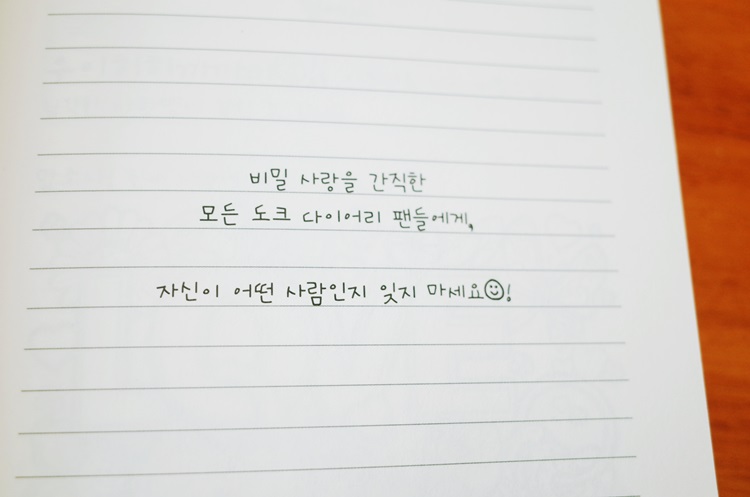 비밀 사랑을 간직한
모든 도크 다이어리 팬들에게,
자신이 어떤 사람인지 잊지 마세요☺!